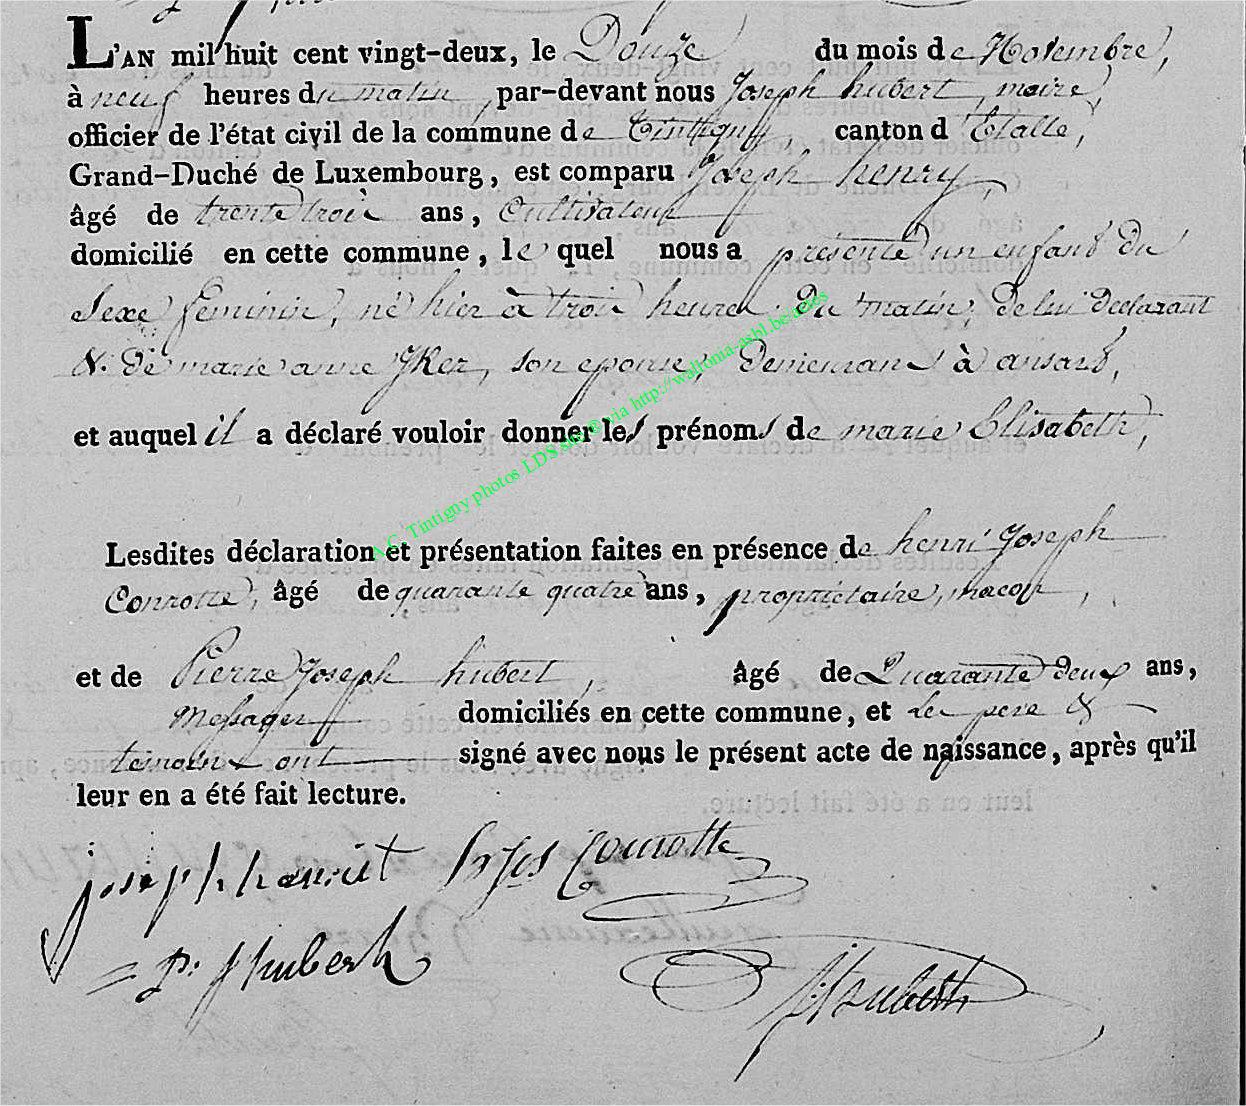 L'AN mil huit cent vingt-deux, le Douze du mois de Novembre,
à neuf heures du matin, par-devant nous Joseph hubert, maire,
officier de l'état civil de la commune de Tintigny, canton d'Etalle,
Grand-Duché de Luxembourg, est comparu Joseph henry,
âgé de trente trois ans, Cultivateur
domicilié en cette commune, le quel nous a présenté un enfant du
Sexe féminin, né hier à trois heures du matin, de lui déclarant
&. de marie anne son epouse, Demeurant à ansart,
et auquel il a déclaré vouloir donner les prénoms de marie Elisabeth,
A.C. Tintigny photos LDS site @ via http://wallonia-asbl.be/actes
Lesdites déclaration et présentation faites en présence de henri Joseph
Connotte, âgé de quarante quatre ans, propriétaire,
et de Pierre Joseph hubert, âgé de Quarante deux ans,
Messager domiciliés en cette commune, et Les pere &
témoins ont signé avec nous le présent acte de naissance, après qu'il
leur en a été fait lecture.
joseph hanriet h jos Connotte
p: j hubert J hubert